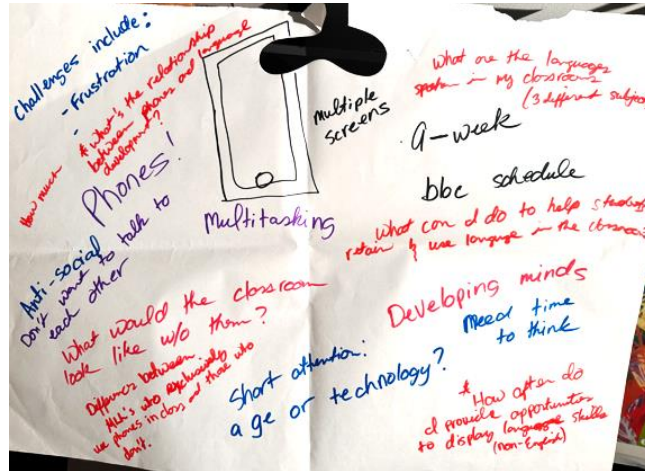 Challenges include:
- Frustration
-
* What's the relationship
between phones and language
development?
How much
Phones!
multiple
screens
Multitasking
What are the languages
spoken in my classroom
(3 different subject
9-week
bbc schedule
What can I do to help students
retain & use language in the classroom
Anti-social
Don't want to talk to
each other
What would the classroom
look like w/o them?
Difference between
who exclusively
use phones in class and those who
don't.
Developing minds
Need time
to think
Short attention:
age or technology?
* How often do
I provide opportunities
to display language skills
(non-English)